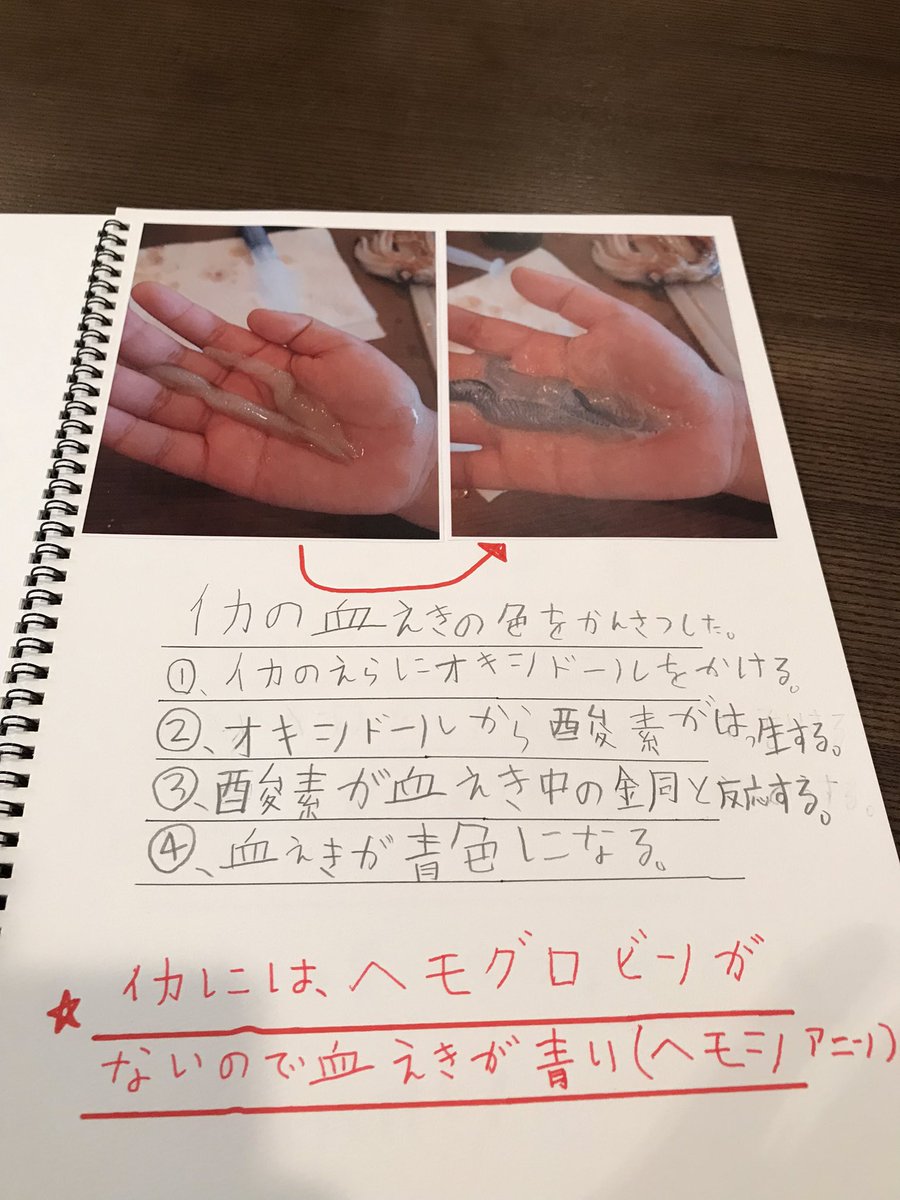 イカの血えきの色をかんさつした。
①、イカのえらにオキシドールをかける。
②、オキシドールから酸素がはっ生する。
③、酸素が血えき中の金同と反応する。
④、血えきが青色になる。
☆イカには、ヘモグロビンが
ないので血えきが青い(ヘモシアニン)